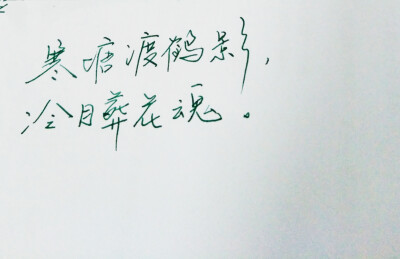 寒塘渡鹤影，
冷月葬花魂。